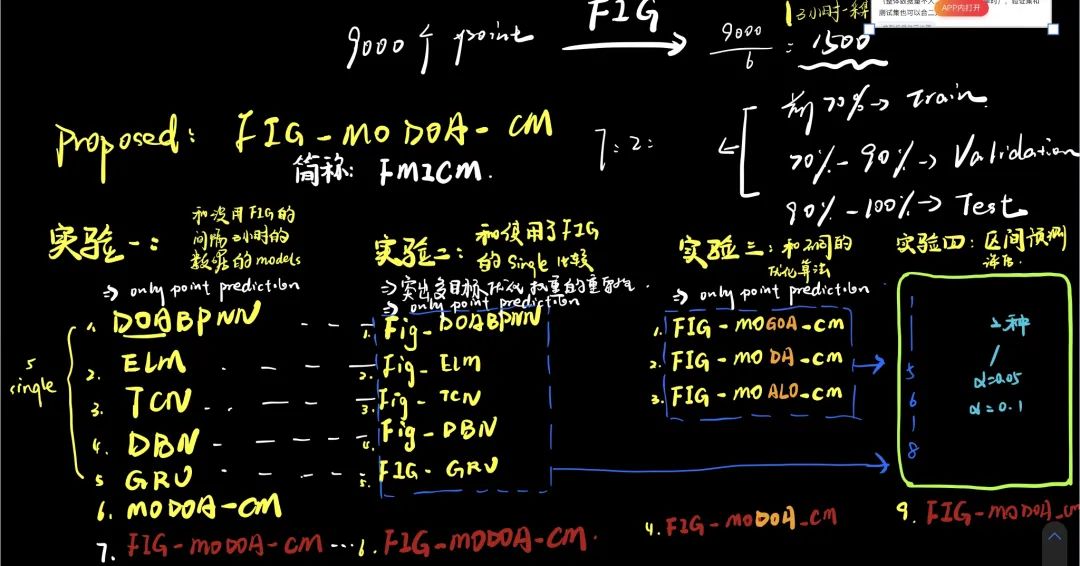 (整体数据量不大
APP内打开
验证集和
测试集也可以合二
3小时一采集
9000个 point
FIG
9000
6
= 1500
前70% → Train
7:2:
70% - 90% → Validation
90% - 100% → Test
Proposed: FIG-MODOA-CM
简称: FM2CM.
实验一:
和没用FIG的
间隔3小时的
数据的models
⇒ only point prediction
5
single
1. DOABPNN
2. ELM
3. TCN
4. DBN
5 GRU
6. MODOA-CM
7. FIG-MODOA-CM
实验二:
和使用了FIG
的 Single 比较
⇒ 突出多目标优化权重的重要性.
⇒ only point prediction
1. Fig-DOABPNN
2. Fig-ELM
3. Fig-TCN
4. Fig-DBN
5. FIG-GRU
6. FIG-MODOA-CM.
实验三: 和不同的
优化算法
⇒ only point prediction
1. FIG-MOGOA-CM
2. FIG-MODA-CM
3. FIG-MOALO-CM
4. FIG-MODOA-CM
实验四: 区间预测
1
5
6
8
2种
α=0.05
α=0.1
9. FIG-MODOA-CM